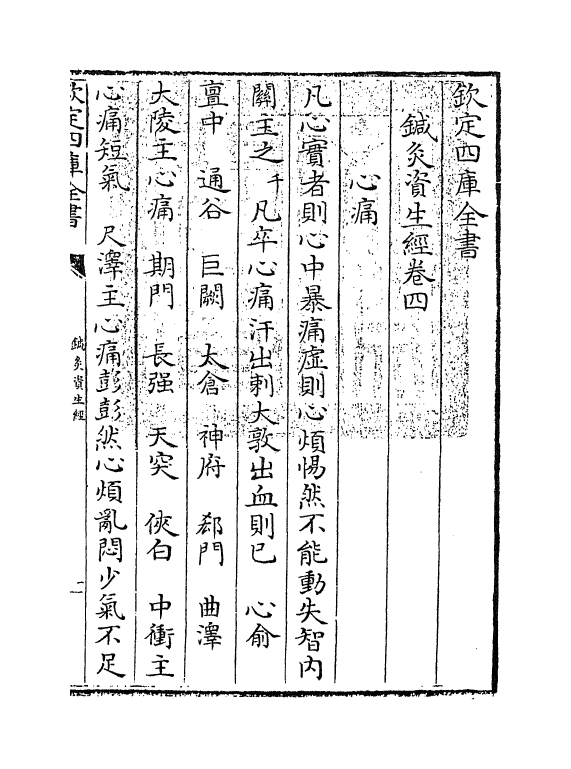 欽定四庫全書
鍼灸資生經卷四
心痛
凡心實者則心中暴痛虛則心煩惕然不能動失智内
關主之千凡卒心痛汗出刺大敦出血則已　心俞
亶中　通谷　巨闕　太倉　神府　郄門　曲澤
大陵主心痛　期門　長强　天突　俠白　中衝主
心痛短氣　尺澤主心痛彭彭然心煩亂悶少氣不足
欽定四庫全書
鍼灸資生經